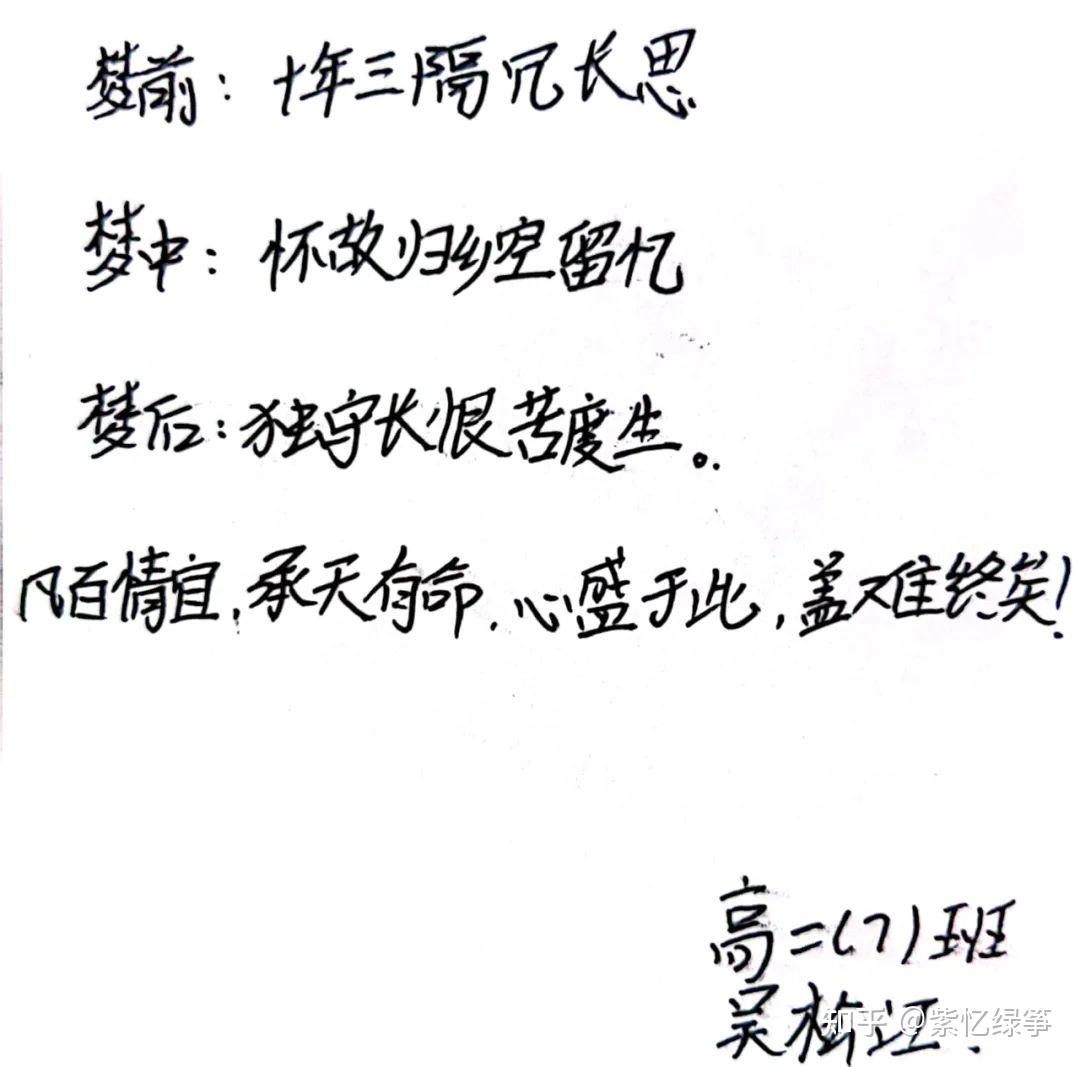 梦前：十年三隔冗长思
梦中：怀故归乡空留忆
梦后：独守长恨苦度生。
凡百情宜，承天有命，心盛于此，盖难终矣！
高二(7)班
吴
知乎 @紫忆绿笋